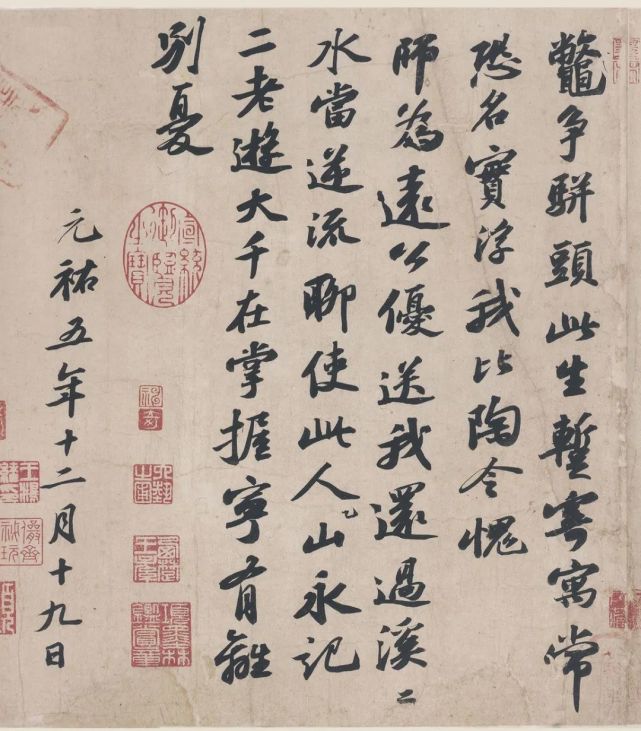 鼈争駢頭此生蹔寄寓常
恐名實浮我比陶令愧
師為遠公優送我還過溪〻
水當逆流聊使此人山永記
二老遊大千在掌握寧有離
別憂
元祐五年十二月十九日
項墨林鑑賞章